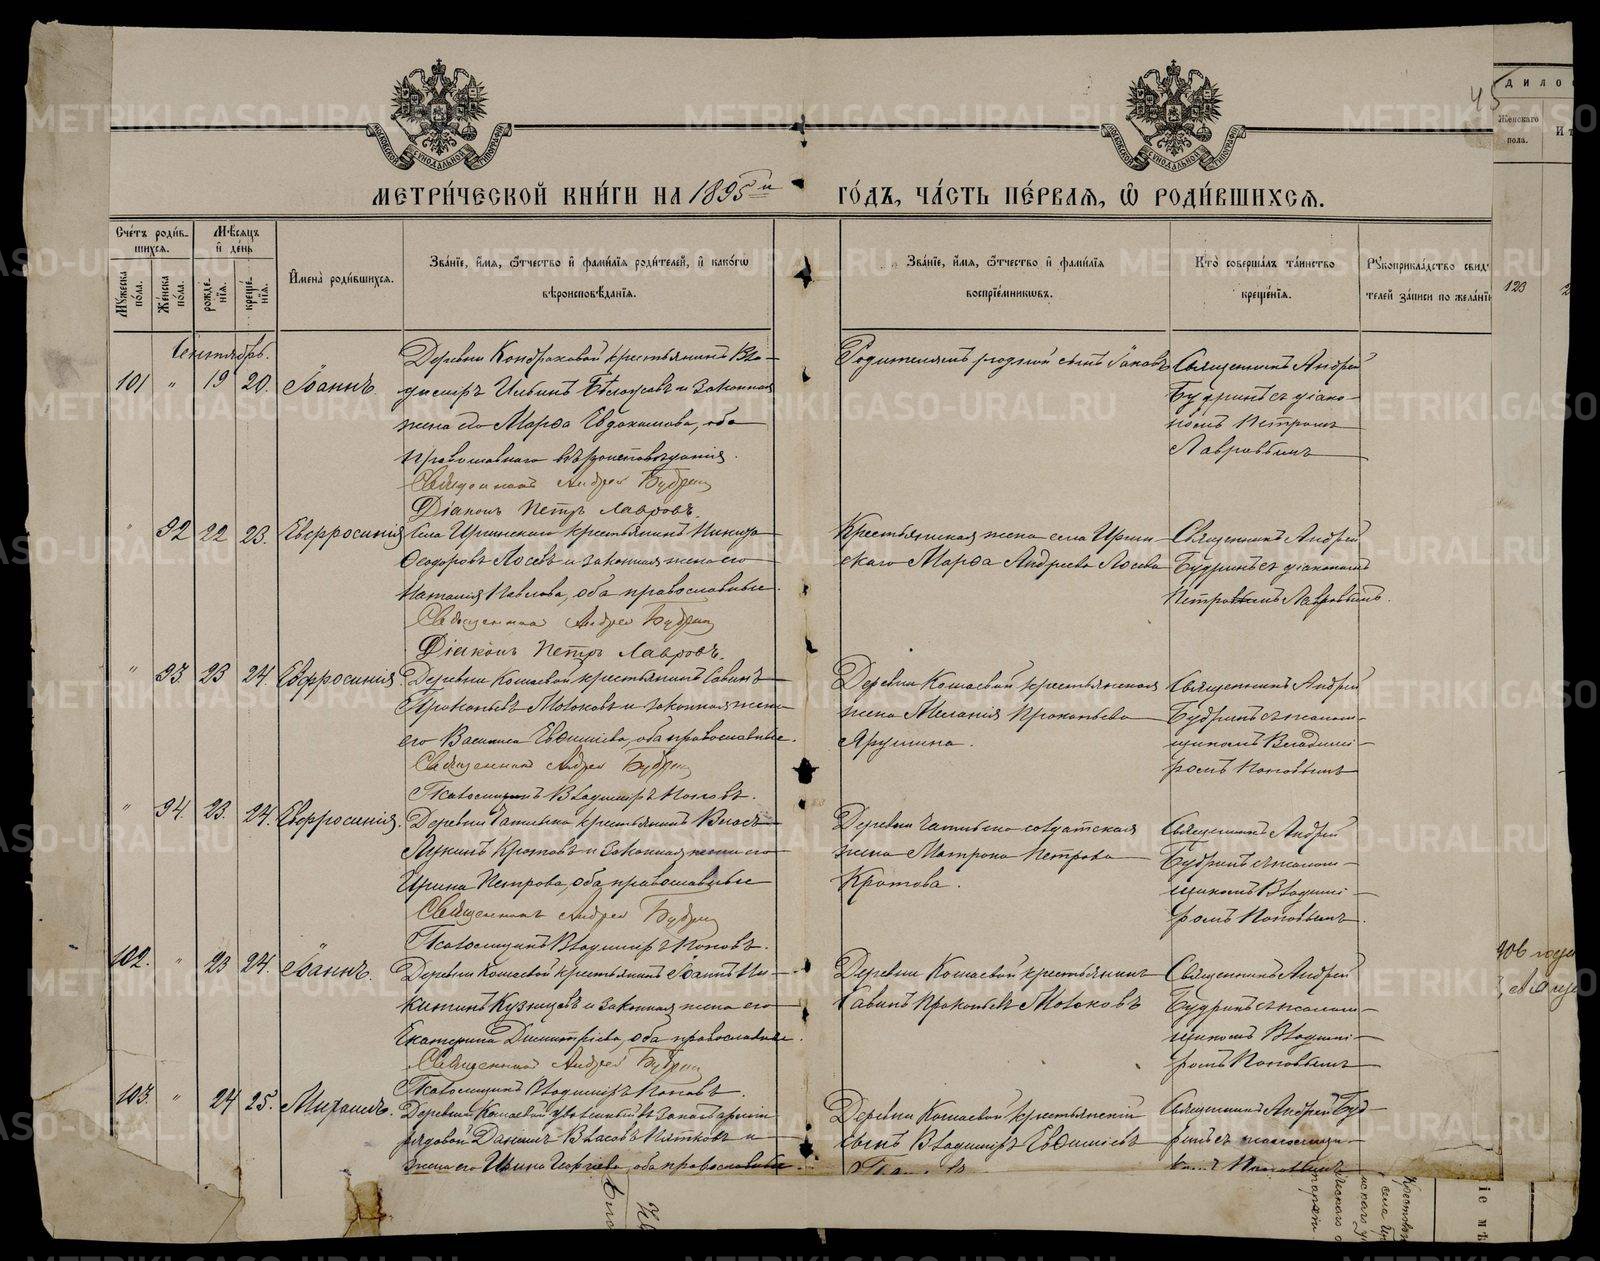 45
МЕТРИ́ЧЕСКОЙ КНИ́ГИ НА 1895й ГО́ДЪ, ЧА́СТЬ ПЕ́РВАЯ, Ѿ РОДИ́ВШИХСЯ.
Сче́тъ роди́в-
шихся.
Мꙋжеска по́ла.
Же́нска по́ла.
Мѣ́сяцъ и҆ де́нь
рожде́-нїя.
креще́-нїя.
И҆мена̀ роди́вшихся.
Зва́нїе, и҆́мя, ѻ҆́тчество и҆ фами́лїя роди́телей, и҆ како́гѡ
вѣроисповѣ́данїя.
Зва́нїе, и҆́мя, ѻ҆́тчество и҆ фами́лїя
воспрїе́мникѡвъ.
Кто̀ соверша́лъ та́инство
креще́нїя.
Рꙋкоприкла́дство свид
телей за́писи по жела́нї
Женскаго
пола.
123
Сентябрь.
101 " 19 20. Іоаннъ.
Деревни Кондраковой крестьянинъ Вла-
димиръ Ильинъ и законная
жена его Марѳа Евдокимова, оба
православнаго вѣроисповѣданія.
Священникъ Андрей Будрин
Діаконъ Петръ Лавровъ.
Родителямъ родной сынъ Іаковъ
Священникъ Андрей
Будринъ съ діако-
номъ Петромъ
Лавровымъ
" 92 22 23. Евфросинія
Села Иргинскаго крестьянинъ Никита
Ѳеодоровъ Лосевъ и законная жена его
Наталія Павлова, оба православные.
Священникъ Андрей Будрин
Діаконъ Петръ Лавровъ.
Крестьянская жена села Иргин-
скаго Марѳа Андреева Лосева
Священникъ Андрей
Будринъ съ діакономъ
Петромъ Лавровымъ.
" 93. 23 24. Евфросинія
Деревни Кошаевой крестьянинъ Савинъ
Прокопьевъ Мотоковъ и законная жена
его Василиса Евѳиміева, оба православные.
Священникъ Андрей Будрин
Псаломщикъ Владимиръ Поповъ.
Деревни Кошаевой крестьянская
жена Меланія Прокопьева
Ярушина.
Священникъ Андрей
Будринъ съ псалом-
щикомъ Владими-
ромъ Поповымъ
" 94. 23. 24. Евфросинія.
Деревни крестьянинъ Власъ
Лукинъ Кротовъ и законная жена его
Ирина Петрова, оба православные
Священникъ Андрей Будрин
Псаломщикъ Владимиръ Поповъ.
Деревни солдатская
жена Матрона Петрова
Кротова.
Священникъ Андрей
Будринъ съ псалом-
щикомъ Владими-
ромъ Поповымъ.
102. " 23 24. Іоаннъ.
Деревни Кошаевой крестьянинъ Іоаннъ Ни-
китинъ Кузнецовъ и законная жена его
Екатерина Димитріева, оба православные.
Священникъ Андрей Будрин
Псаломщикъ Владимиръ Поповъ.
Деревни Кошаевой крестьянинъ
Савинъ Прокопьевъ Мотоковъ
Священникъ Андрей
Будринъ съ псалом-
щикомъ Владими-
ромъ Поповымъ
103. " 24 25. Михаилъ.
Деревни Кошаевой уволенный въ запасъ арміи
рядовой Даніилъ Власовъ Пятковъ и
жена его Ирина Георгіева, оба православные
Деревни Кошаевой крестьянскій
сынъ Владимиръ Евѳиміевъ
Священникъ Андрей Буд-
ринъ съ псаломщи-
комъ Поповымъ